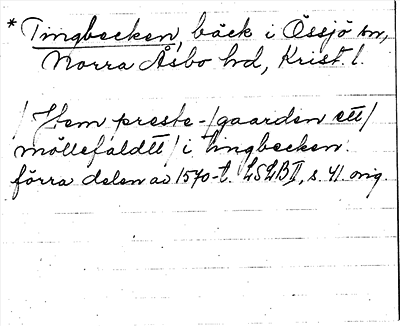 * Tingbecken, bäck i Össjö sn,
Norra Åsbo hd, Krist. l.
/ Hem preste-/gaarden ett/
mölle faldtt/ i tingbecken.
förra delen av 1570-t. LSLB II, s. 41 orig.